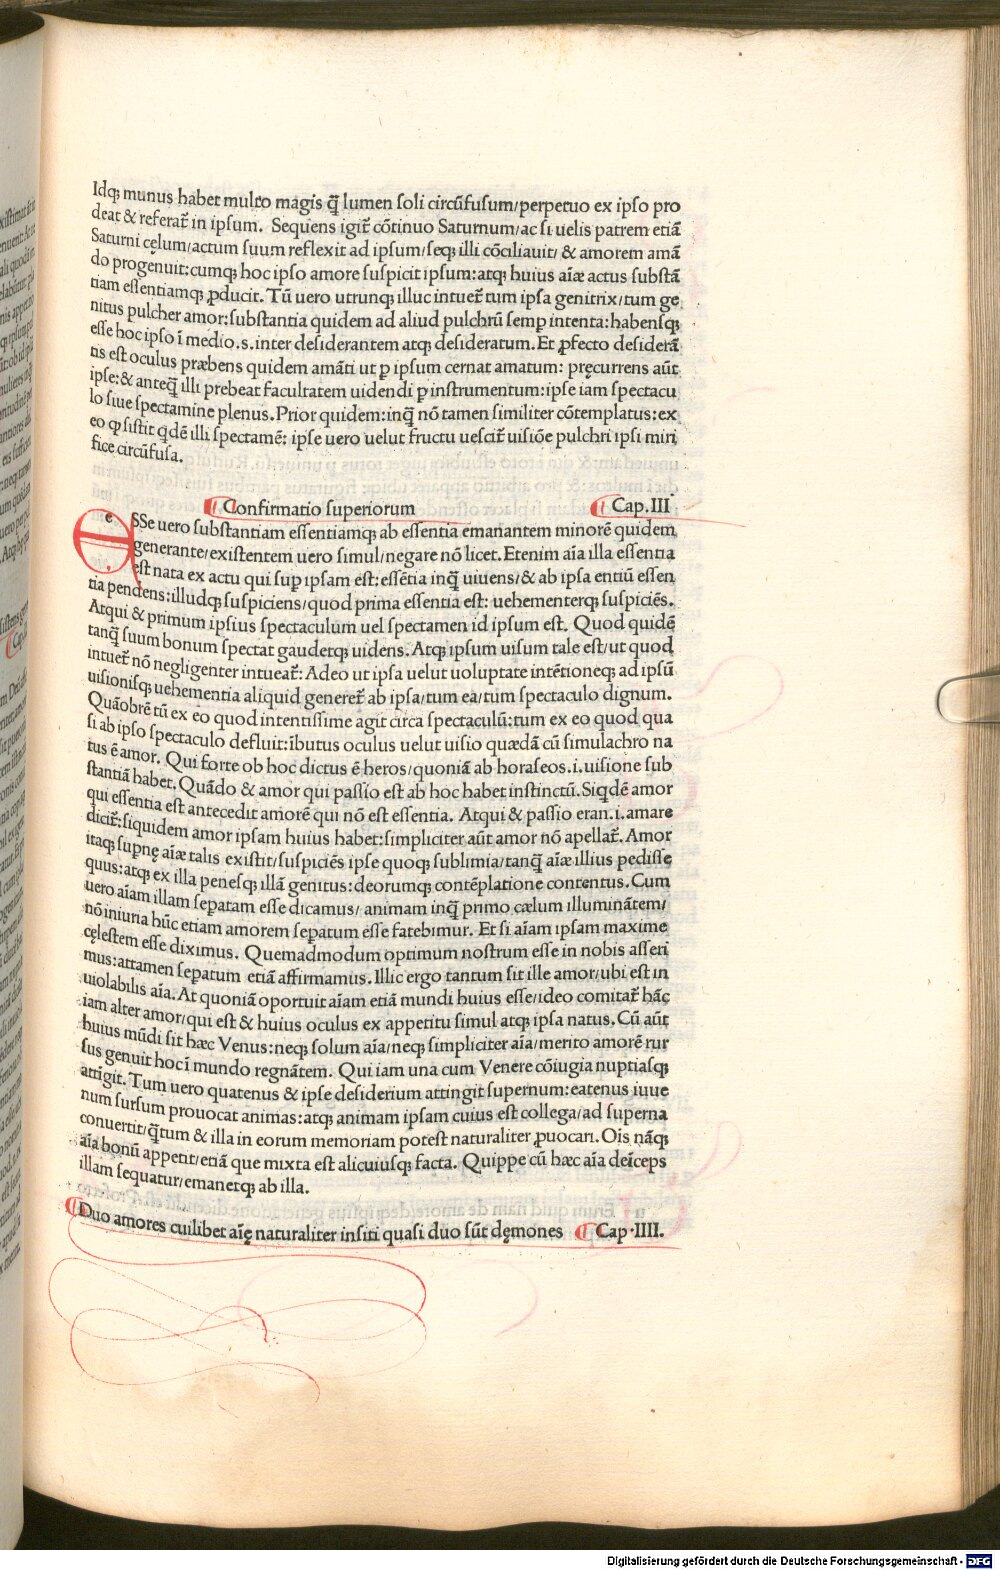 Idq; munus habet multo magis q̄ lumen soli circūfusum/perpetuo ex ipso pro
deat & referat̄ in ipsum. Sequens igit̄ cōtinuo Saturnum/ac si uelis patrem etiā
Saturni cęlum/actum suum reflexit ad ipsum/seq; illi cōciliauit/ & amorem amā
do progenuit:cumq; hoc ipso amore suspicit ipsum:atq; huius aīæ actus substā
tiam essentiamq; ꝓducit. Tū uero utrunq; illuc intuet̄ tum ipsa genitrix/tum ge
nitus pulcher amor:substantia quidem ad aliud pulchrū semp intenta:habensq;
esse hoc ipso ī medio.s.inter desiderantem atq; desideratum. Et ꝓfecto desiderā
tis est oculus præbens quidem amāti ut ꝑ ipsum cernat amatum: pręcurrens aūt
ipse:& anteq̄ illi prebeat facultatem uidendi ꝑ instrumentum:ipse iam spectacu
lo siue spectamine plenus.Prior quidem:inq̄ nō tamen similiter cōtemplatus:ex
eo ꝙ sistit q̇dē illi spectamē: ipse uero uelut fructu uescit̄ uisiōe pulchri ipsi miri
fice circūfusa.
Confirmatio superiorum Cap.III
eSSe uero substantiam essentiamq; ab essentia emanantem minorē quidem
generante/existentem uero simul/negare nō licet.Etenim aīa illa essentia
est nata ex actu qui suꝑ ipsam est:essētia inq̄ uiuens/& ab ipsa entiū essen
tia pendens:illudq; suspiciens/quod prima essentia est: uehementerq; suspiciēs.
Atqui & primum ipsius spectaculum uel spectamen id ipsum est. Quod quidē
tanq̄ suum bonum spectat gaudetq; uidens. Atq; ipsum uisum tale est/ut quod
intuet̄ nō negligenter intueat̄: Adeo ut ipsa uelut uoluptate intētioneq; ad ipsū
uisionisq; uehementia aliquid generet̄ ab ipsa/tum ea/tum spectaculo dignum.
Quāobrē tū ex eo quod intentissime agit circa spectaculū:tum ex eo quod qua
si ab ipso spectaculo defluit:ībutus oculus uelut uisio quædā cū simulachro na
tus ē amor. Qui forte ob hoc dictus ē heros/quoniā ab horaseos.i.uisione sub
stantiā habet. Quādo & amor qui passio est ab hoc habet instinctū. Siq̇dē amor
qui essentia est antecedit amorē qui nō est essentia. Atqui & passio eran.i.amare
dicit̄:siquidem amor ipsam huius habet:simpliciter aūt amor nō apellat̄. Amor
itaq; supnę aīæ talis existit/suspiciēs ipse quoq; sublimia/tanq̄ aīæ illius pedisse
quus:atq; ex illa penesq; illā genitus:deorumq; contēplatione contentus.Cum
uero aīam illam sepatam esse dicamus/ animam inq̄ primo cælum illuminātem/
nō iniuria hūc etiam amorem sepatum esse fatebimur. Et si aīam ipsam maxime
cęlestem esse diximus. Quemadmodum optimum nostrum esse in nobis asseri
mus:attamen sepatum etiā affirmamus. Illic ergo tantum sit ille amor/ubi est in
uiolabilis aīa. At quoniā oportuit aīam etiā mundi huius esse/ideo comitat̄ hāc
iam alter amor/qui est & huius oculus ex appetitu simul atq; ipsa natus. Cū aūt
huius mūdi sit hæc Venus:neq; solum aīa/neq; simpliciter aīa/merito amorē rur
sus genuit hoc ī mundo regnātem. Qui iam una cum Venere cōiugia nuptiasq;
attīgit. Tum uero quatenus & ipse desiderium attingit supernum:eatenus iuue
num sursum prouocat animas:atq; animam ipsam cuius est collega/ad superna
conuertit/q̄tum & illa in eorum memoriam potest naturaliter ꝓuocari. Oīs nāq;
aīa bonū appetit/etiā que mixta est alicuiusq; facta. Quippe cū hæc aīa deīceps
illam sequatur/emanetq; ab illa.
Duo amores cuilibet aīę naturaliter insiti quasi duo sūt dęmones Cap.IIII.
Digitalisierung gefördert durch die Deutsche Forschungsgemeinschaft - DFG